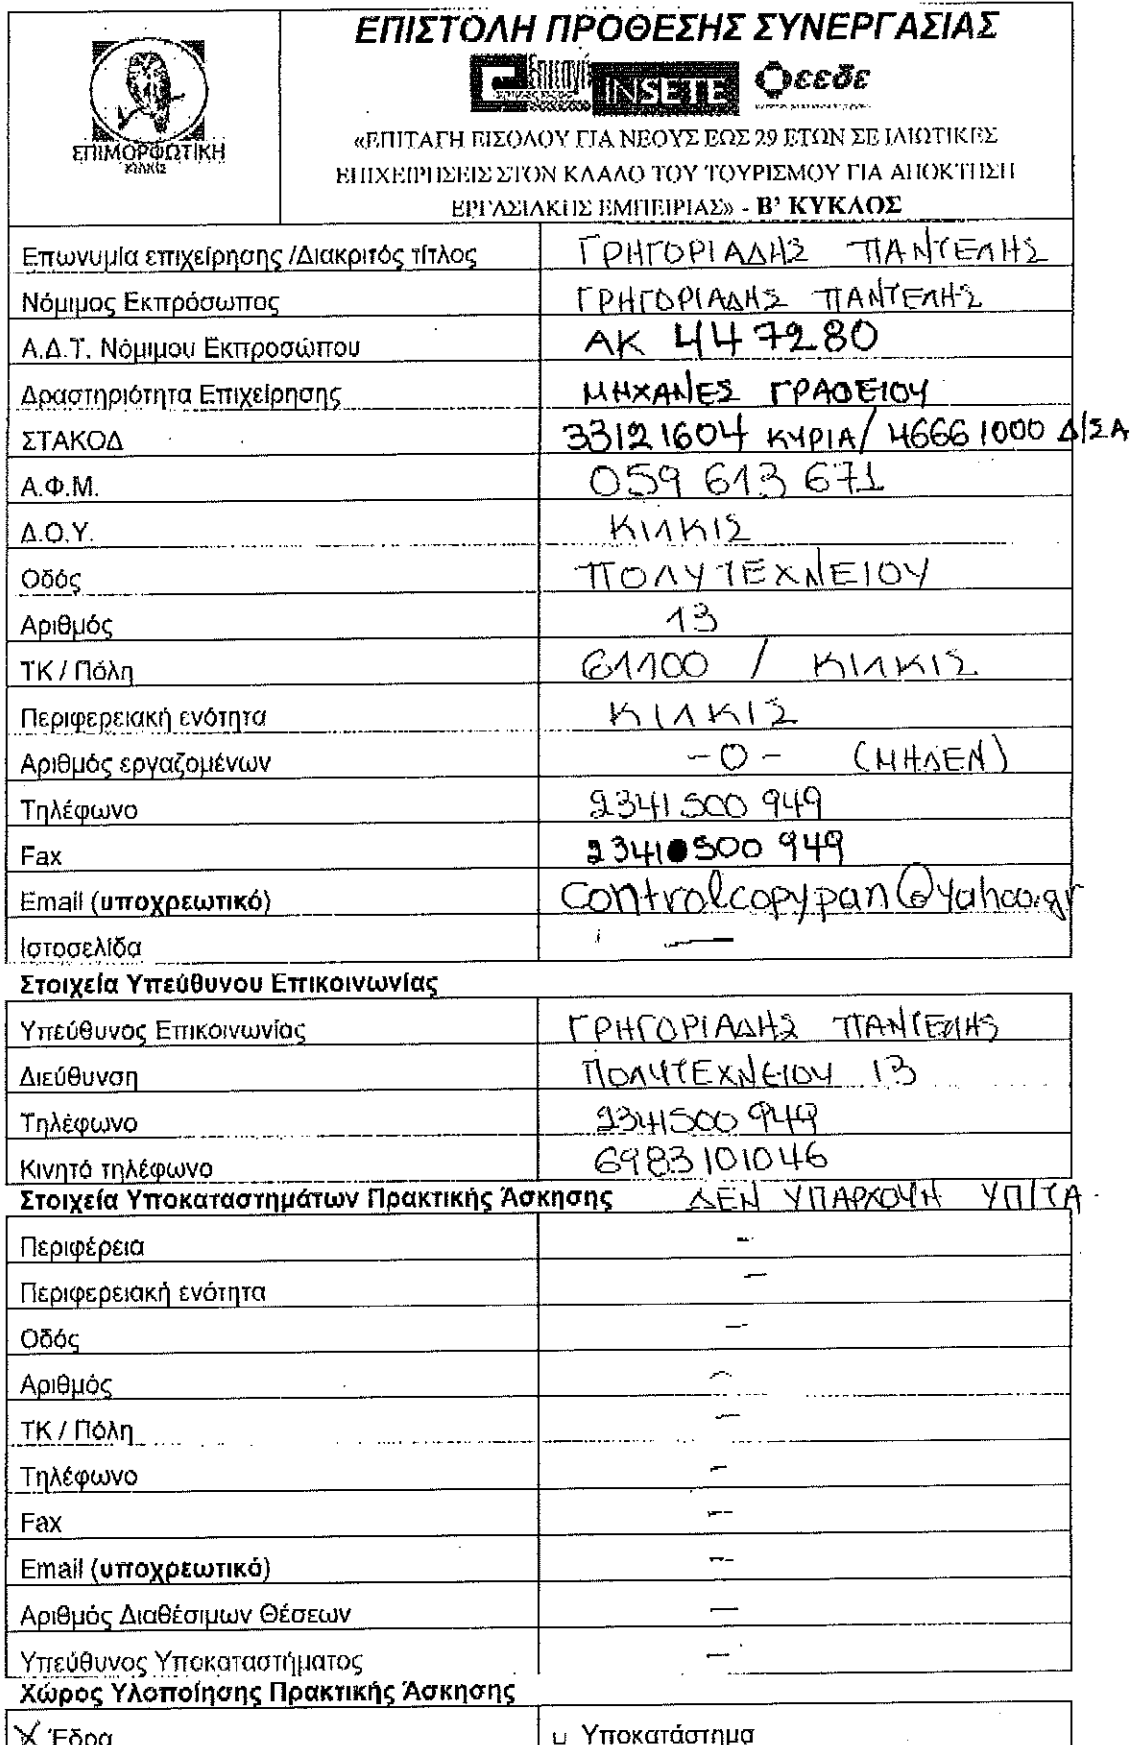 ΕΠΙΣΤΟΛΗ ΠΡΟΘΕΣΗΣ ΣΥΝΕΡΓΑΣΙΑΣ
ΕΠΙΜΟΡΦΩΤΙΚΗ
ΚΙΛΚΙΣ
INSETE
εεδε
«ΕΠΙΤΑΓΗ ΕΙΣΟΔΟΥ ΓΙΑ ΝΕΟΥΣ ΕΩΣ 29 ΕΤΩΝ ΣΕ ΙΔΙΩΤΙΚΕΣ
ΕΠΙΧΕΙΡΗΣΕΙΣ ΣΤΟΝ ΚΛΑΔΟ ΤΟΥ ΤΟΥΡΙΣΜΟΥ ΓΙΑ ΑΠΟΚΤΗΣΗ
ΕΡΓΑΣΙΑΚΗΣ ΕΜΠΕΙΡΙΑΣ» - Β' ΚΥΚΛΟΣ
Επωνυμία επιχείρησης /Διακριτός τίτλος ΓΡΗΓΟΡΙΑΔΗΣ ΠΑΝΤΕΛΗΣ
Νόμιμος Εκπρόσωπος ΓΡΗΓΟΡΙΑΔΗΣ ΠΑΝΤΕΛΗΣ
Α.Δ.Τ. Νόμιμου Εκπροσώπου ΑΚ 447280
Δραστηριότητα Επιχείρησης ΜΗΧΑΝΕΣ ΓΡΑΦΕΙΟΥ
ΣΤΑΚΟΔ 33121604 ΚΥΡΙΑ/ 46661000 Δ/ΣΑ
Α.Φ.Μ. 059 613 671
Δ.Ο.Υ. ΚΙΛΚΙΣ
Οδός ΠΟΛΥΤΕΧΝΕΙΟΥ
Αριθμός 13
ΤΚ / Πόλη 61100 / ΚΙΛΚΙΣ
Περιφερειακή ενότητα ΚΙΛΚΙΣ
Αριθμός εργαζομένων -0- (ΜΗΔΕΝ)
Τηλέφωνο 2341 500 949
Fax 2341 500 949
Email (υποχρεωτικό) controlcopypan@yahoo.gr
Ιστοσελίδα —
Στοιχεία Υπεύθυνου Επικοινωνίας
Υπεύθυνος Επικοινωνίας ΓΡΗΓΟΡΙΑΔΗΣ ΠΑΝΤΕΛΗΣ
Διεύθυνση ΠΟΛΥΤΕΧΝΕΙΟΥ 13
Τηλέφωνο 2341500 949
Κινητό τηλέφωνο 6983101046
Στοιχεία Υποκαταστημάτων Πρακτικής Άσκησης ΔΕΝ ΥΠΑΡΧΟΥΝ ΥΠ/ΤΑ
Περιφέρεια -
Περιφερειακή ενότητα -
Οδός -
Αριθμός -
ΤΚ / Πόλη -
Τηλέφωνο -
Fax -
Email (υποχρεωτικό) -
Αριθμός Διαθέσιμων Θέσεων -
Υπεύθυνος Υποκαταστήματος -
Χώρος Υλοποίησης Πρακτικής Άσκησης
X Έδρα □ Υποκατάστημα